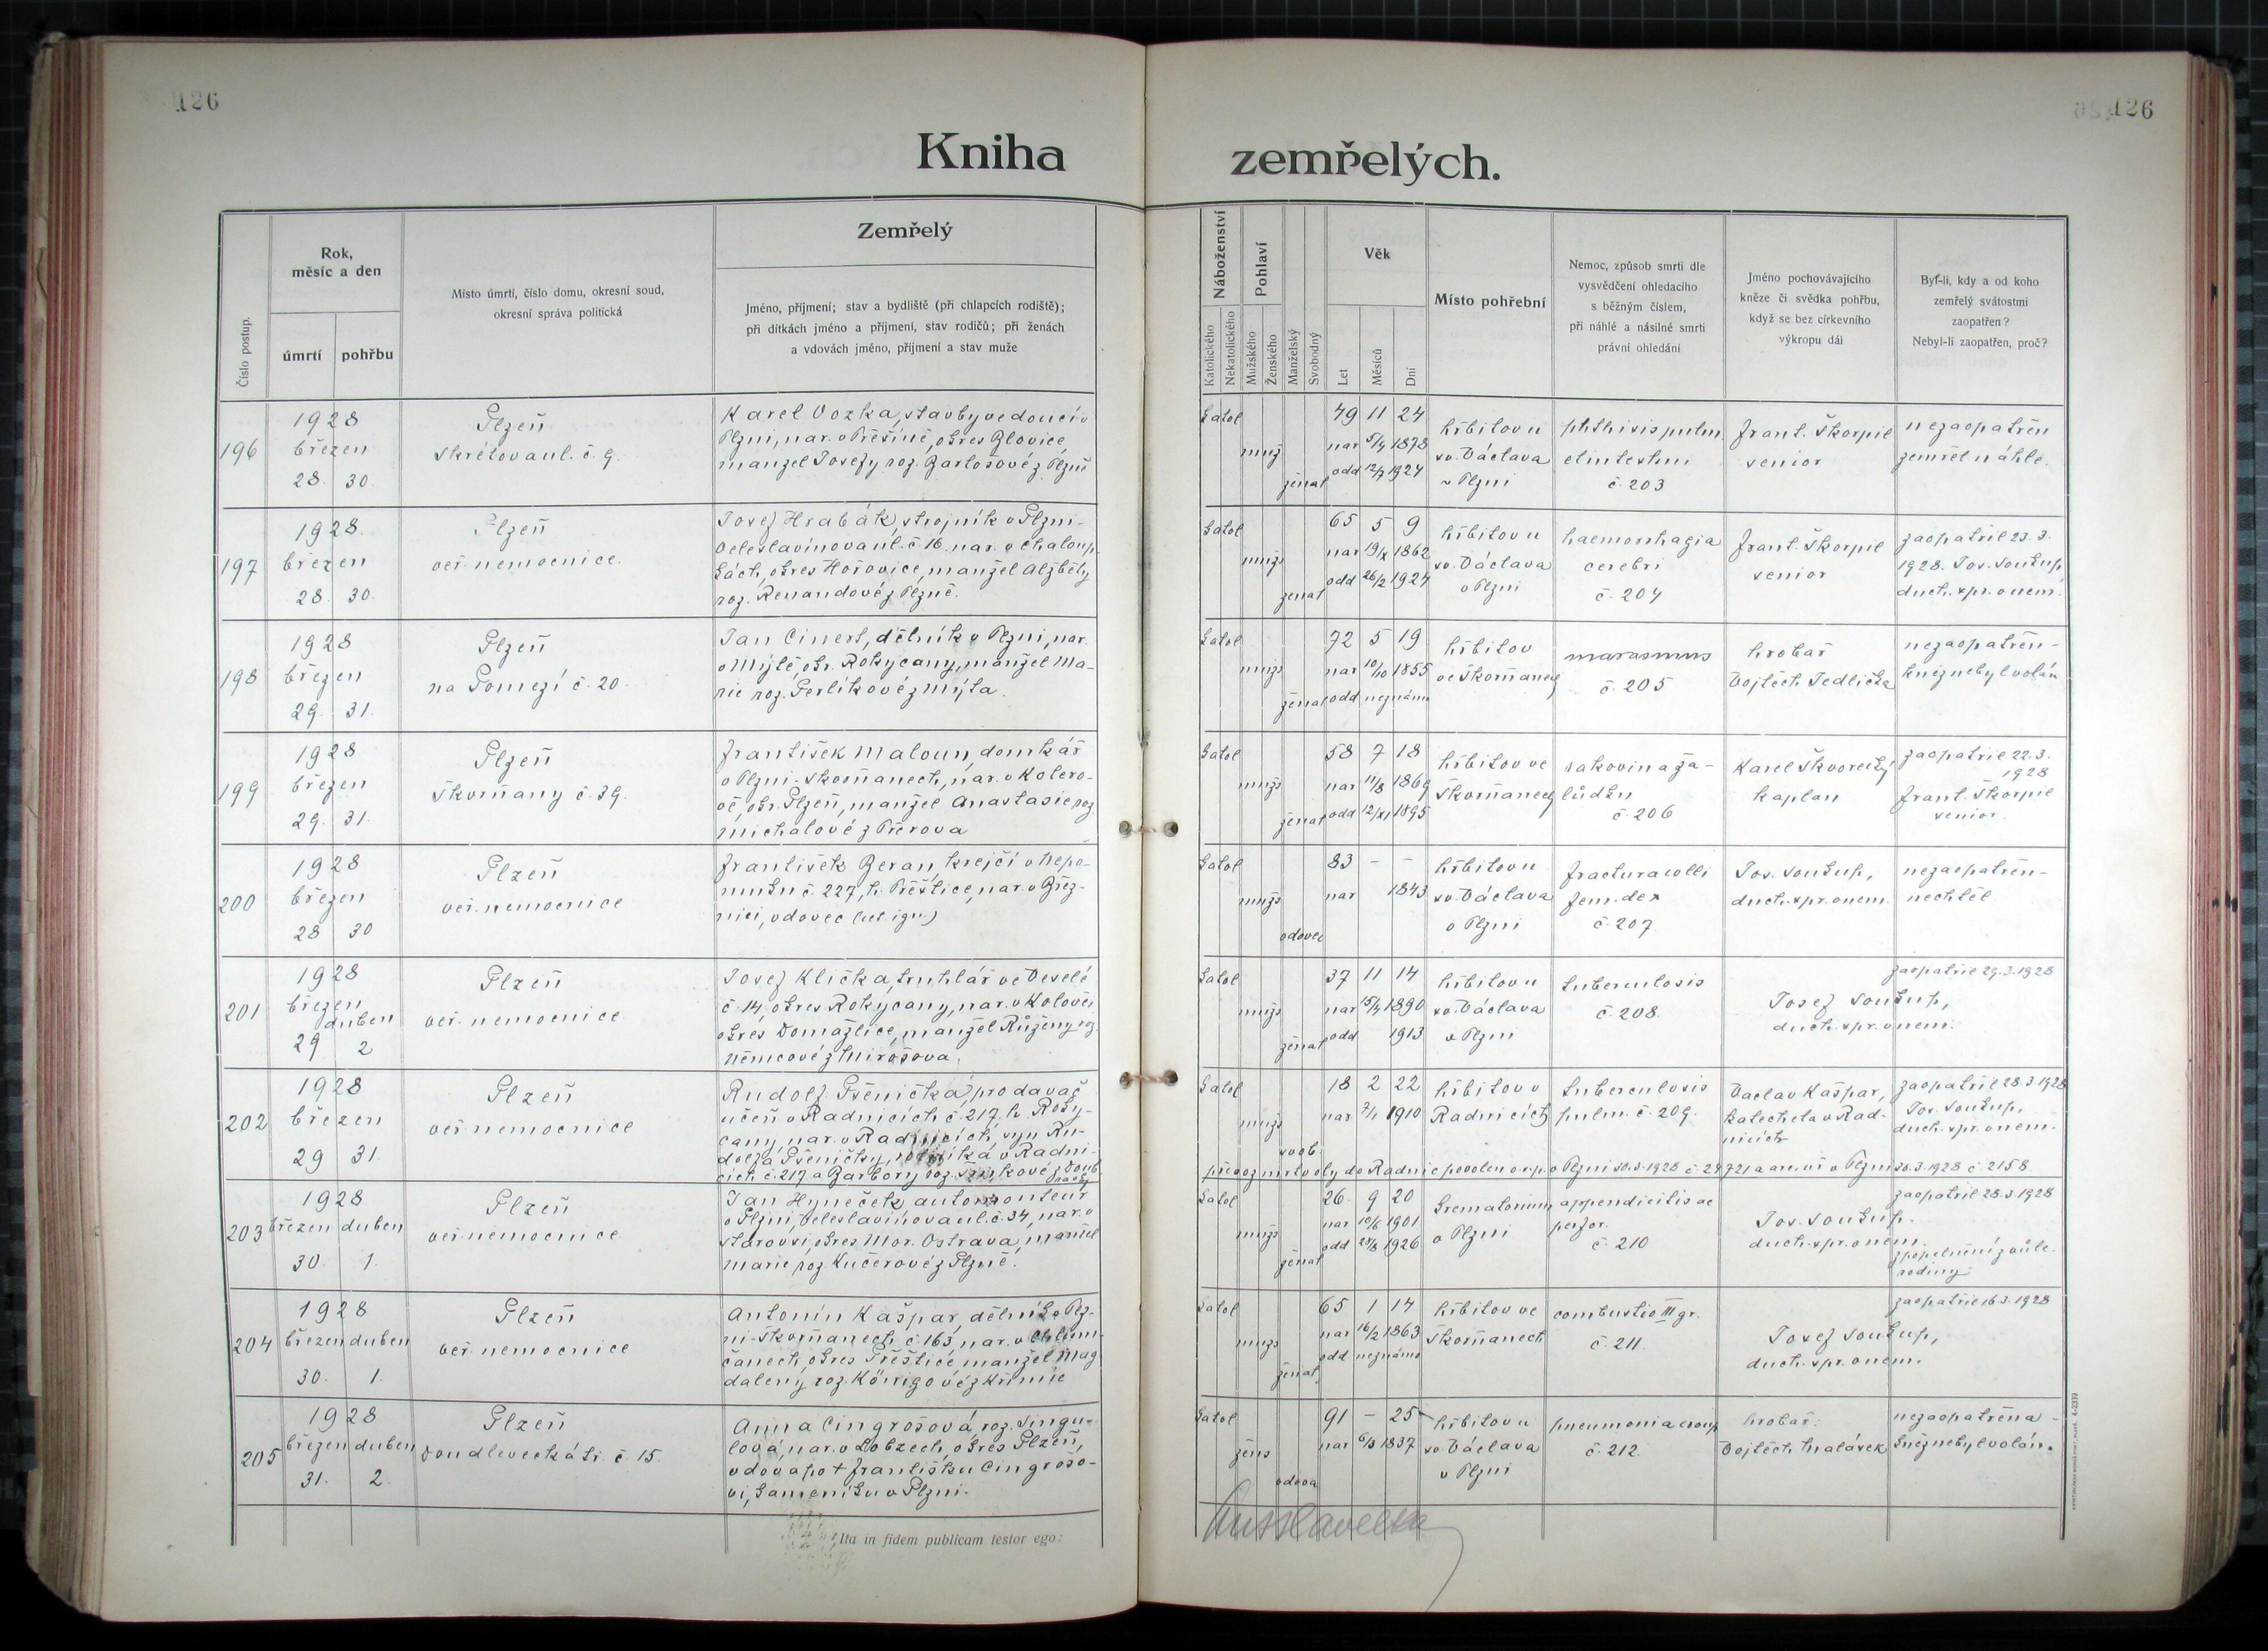 126
126
Kniha zemřelých.
Číslo postup.
Rok,
měsíc a den
úmrtí
pohřbu
Místo úmrtí, číslo domu, okresní soud,
okresní správa politická
Zemřelý
Jméno, příjmení; stav a bydliště (při chlapcích rodiště);
při dítkách jméno a příjmení, stav rodičů; při ženách
a vdovách jméno, příjmení a stav muže
Náboženství
Katolického
Nekatolického
Pohlaví
Mužského
Ženského
Manželský
Svobodný
Věk
Let
Měsíců
Dní
Místo pohřební
Nemoc, způsob smrti dle
vysvědčení ohledacího
s běžným číslem,
při náhlé a násilné smrti
právní ohledání
Jméno pochovávajícího
kněze či svědka pohřbu,
když se bez církevního
výkropu dál
Byl-li, kdy a od koho
zemřelý svátostmi
zaopatřen?
Nebyl-li zaopatřen, proč?
196
1928
březen
28. 30.
Plzeň
Skrétova ul. č. 9.
Karel Vozka, stavbyvedoucí v
Plzni, nar. v Přešíně, okres Blovice,
manžel Josefy roz. Bartošové z Plzně
katol
muž
ženat
49 11 24
nar 5/4 1878
odd 12/7 1924
hřbitov u
sv. Václava
v Plzni
phthisis pulm.
et intestini
č. 203
Frant. Škorpil
senior
nezaopatřen
zemřel náhle.
197
1928.
březen
28. 30.
Plzeň
veř. nemocnice.
Josef Hrabák, strojník v Plzni-
Veleslavínova ul. č. 16. nar. v Chaloup-
kách, okres Hořovice, manžel Alžběty
roz. Renandové z Plzně.
katol
mužs
ženat
65 5 9
nar 19/X 1862
odd 26/2 1924
hřbitov u
sv. Václava
v Plzni
haemorrhagia
cerebri
č. 204
Frant. Škorpil
senior
zaopatřil 23. 3.
1928. Jos. Soukup,
duch. spr. v nem.
198
1928
březen
29. 31.
Plzeň
na Pomezí č. 20.
Jan Cinert, dělník v Plzni, nar.
v Mýtě, okr. Rokycany, manžel Ma-
rie roz. Perlíkové z Mýta.
katol
mužs
ženat
72 5 19
nar 10/10 1855
odd neznámo
hřbitov
ve Škvrňanech
marasmus
č. 205
hrobař
Vojtěch Jedlička
nezaopatřen-
kněz nebyl volán
199
1928
březen
29. 31.
Plzeň
Škvrňany č. 39.
František Maloun, domkář
v Plzni-Škvrňanech, nar. v Kotero-
vě, okr. Plzeň, manžel Anastasie roz.
Michalové z Přerova
katol
mužs
ženat
58 7 18
nar 11/8 1869
odd 12/XI 1895
hřbitov ve
Škvrňanech
rakovina ža-
lůdku
č. 206
Karel Škvorecký
kaplan
zaopatřil 22. 3.
1928
Frant. Škorpil
senior.
200
1928
březen
28 30
Plzeň
veř. nemocnice
František Beran, krejčí v Nepo-
muku č. 227, h. Přeštice, nar. v Břez-
nici, vdovec (ux. ign.)
katol
mužs
vdovec
83 - -
nar 1843
hřbitov u
sv. Václava
v Plzni
fractura colli
fem. dex
č. 207.
Jos. Soukup,
duch. spr. v nem.
nezaopatřen-
nechtěl.
201
1928
březen
duben
29 2
Plzeň
veř. nemocnice.
Josef Klička, truhlář ve Veselé
č. 14, okres Rokycany, nar. v Kolovči
okres Domažlice, manžel Růženy roz.
Němcové z Mirošova.
katol
mužs
ženat
37 11 14
nar 15/4 1890
odd 1913
hřbitov u
sv. Václava
v Plzni
tuberculosis
č. 208.
zaopatřil 29. 3. 1928
Josef Soukup,
duch. spr. v nem.
202
1928
březen
29 31.
Plzeň
veř. nemocnice
Rudolf Pšenička, prodavač
učeň v Radnicích č. 217, h. Roky-
cany, nar. v Radnicích, syn Ru-
dolfa Pšeničky, v Radni-
cích č. 217 a Barbory roz.
katol
mužs
svob.
18 2 22
nar 7/1 1910
hřbitov v
Radnicích
tuberculosis
pulm. č. 209.
Václav Kašpar,
katecheta v Rad-
nicích
zaopatřil 28. 3. 1928
Jos. Soukup,
duch. spr. v nem.
převoz mrtvoly do Radnic povolen o. s. p. v Plzni 30. 3. 1928 č. 29721 a arc. úř. v Plzni 30. 3. 1928 č. 2158.
203
1928
březen duben
30. 1.
Plzeň
veř. nemocnice
Jan Hyneček, automonteur
v Plzni, Veleslavínova ul. č. 34, nar. v
okres Mor. Ostrava, manžel
Marie roz. Kučerové z Plzně.
katol
mužs
ženat
26 9 20
nar 10/6 1901
odd 28/8 1926
krematorium
v Plzni
appendicitis ac
perfor.
č. 210
zaopatřil 28. 3. 1928
Jos. Soukup.
duch. spr. v nem.
zpopelnění z vůle
rodiny.
204
1928
březen duben
30. 1.
Plzeň
veř. nemocnice
Antonín Kašpar, dělník v Plz-
ni-Škvrňanech č. 163, nar. v Chlum-
čanech, okres Přeštice, manžel Mag-
daleny roz. Königové z Křimic
katol
mužs
ženat.
65 1 14
nar 16/2 1863
odd neznámo
hřbitov ve
Škvrňanech
combustio III gr.
č. 211.
zaopatřil 16. 3. 1928
Josef Soukup,
duch. spr. v nem.
205
1928
březen duben
31. 2.
Plzeň
Doudlevecká tř. č. 15.
Anna Cingrošová, roz. Singu-
lová, nar. v Lobzech, okres Plzeň,
vdova po † Františku Cingrošo-
vi, kameníku v Plzni.
katol
žens
vdova
91 - 25
nar 6/3 1837
hřbitov u
sv. Václava
v Plzni
pneumonia croup
č. 212.
hrobař:
Vojtěch Malásek
nezaopatřena -
kněz nebyl volán.
Ita in fidem publicam testor ego: